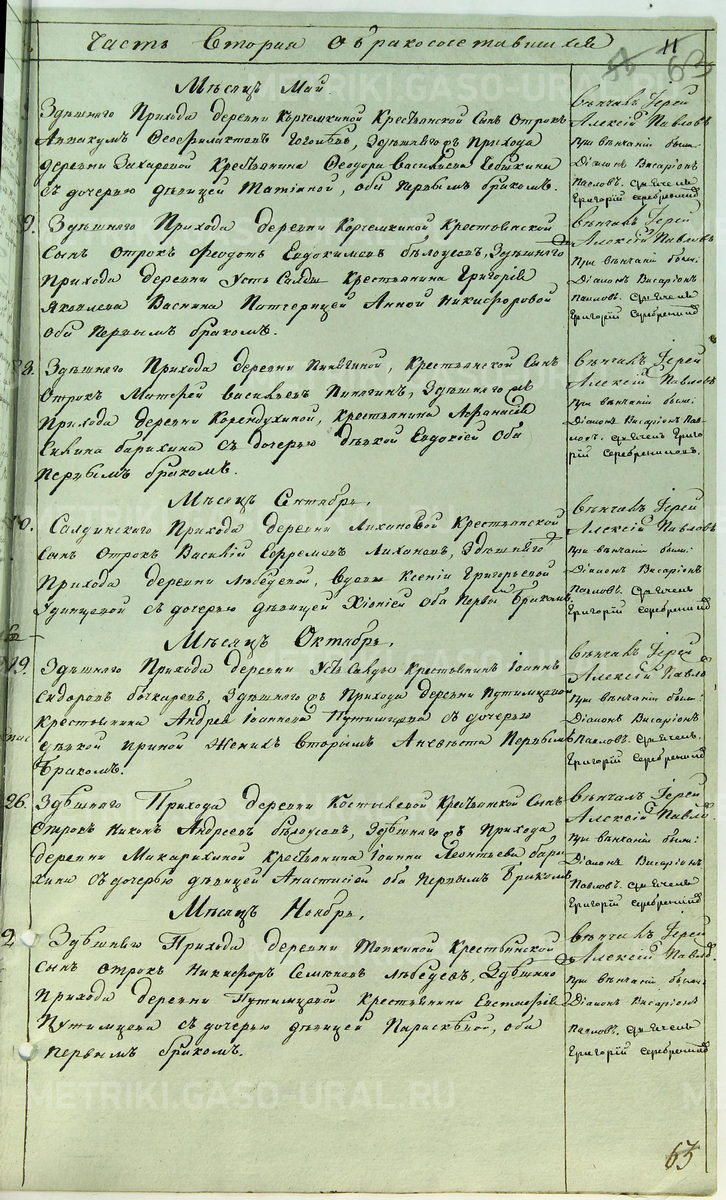 Часть Вторая о бракосочетавшихся
11
63
Мѣсяцъ Май.
Здѣшнего Прихода деревни Корчемкиной Крестьянской Сынъ Отрокъ
Аввакумъ Феофилактовъ Здѣшнего жъ Прихода
деревни Захаровой Крестьянина Феодора Васильева
съ дочерью дѣвицей Татіаной, оба первымъ бракомъ.
Вѣнчалъ Іерей
Алексій Павловъ
при вѣнчаніи были
Діаконъ Висаріонъ
Павловъ.
Григорій
9. Здѣшнего Прихода деревни Корчемкиной Крестьянской
Сынъ отрокъ Феодотъ Евдокимовъ бѣлоусовъ, Здѣшнего
Прихода деревни Усть Салды Крестьянина Григорія
Яковлева Васнина Падчерицей Анной Никифоровой
оба Первымъ бракомъ.
Вѣнчалъ Іерей
Алексій Павловъ
При вѣнчаніи были:
Діаконъ Висаріонъ
Павловъ.
Григорій
Здѣшнего Прихода деревни Пинягиной, Крестьянской Сынъ
Отрокъ Матфей Васильевъ Пинягинъ, Здѣшнего жъ
Прихода деревни Корендухиной, Крестьянина Афанасія
барихина съ дочерью дѣвкой Евдокіей Оба
Первымъ бракомъ.
Вѣнчалъ Іерей
Алексій Павловъ
при вѣнчаніи были:
Діаконъ Висаріонъ Пав-
ловъ. Григо-
рій Серебрениковъ.
Мѣсяцъ Сентябрь.
Салдинскаго Прихода деревни Лихановой Крестьянской
Сынъ Отрокъ Василій Ефремовъ Лихановъ, Здѣшнего
Прихода деревни Лебедевой, Вдовы Ксеніи Григорьевой
Удинцевой съ дочерью дѣвицей Хіоніей Оба Первы Бракомъ.
Вѣнчалъ Іерей
Алексій Павловъ
При вѣнчаніи были:
Діаконъ Висаріонъ
Павловъ.
Григорій
Мѣсяцъ Октябрь.
19. Здѣшнего Прихода деревни Усть Салды Крестьянинъ Іоаннъ
Сидоровъ бочкаревъ, Здѣшнего жъ Прихода деревни Путимцевой
крестьянина Андрея Іоаннова Путимцева съ дочерью
дѣвкой Ириной Женихъ Вторымъ А невѣста Первымъ
Бракомъ.
Вѣнчалъ Іерей
Алексій Павло
при вѣнчаніи были:
Діаконъ Висаріонъ
Павловъ.
Григорій
26. Здѣшнего Прихода деревни Костылевой Крестьянской Сынъ
Отрокъ Никонъ Андреевъ бѣлоусовъ, Здѣшнего жъ Прихода
деревни Макарихиной Крестьянина Іоанна Леонтьева бари
хина съ дочерью дѣвицей Анастасіей оба первымъ Бракомъ
Вѣнчалъ Іерей
Алексій Павло
При вѣнчаніи были:
Діаконъ Висаріонъ
Павловъ.
Григорій
Мѣсяцъ Ноябрь.
2 Здѣшнего Прихода деревни Топкиной Крестьянской
сынъ отрокъ Никифоръ Семеновъ Лебедевъ, Здѣшнего
Прихода деревни Путимцовой Крестьянина Евстафія
Путимцева съ дочерью дѣвицей Параскевой, оба
первымъ бракомъ.
Вѣнчалъ Іерей
Алексій Павлов
При вѣнчаніи были:
Діаконъ Висаріонъ
Павловъ.
Григорій
METRIKI.GASO-URAL.RU
63